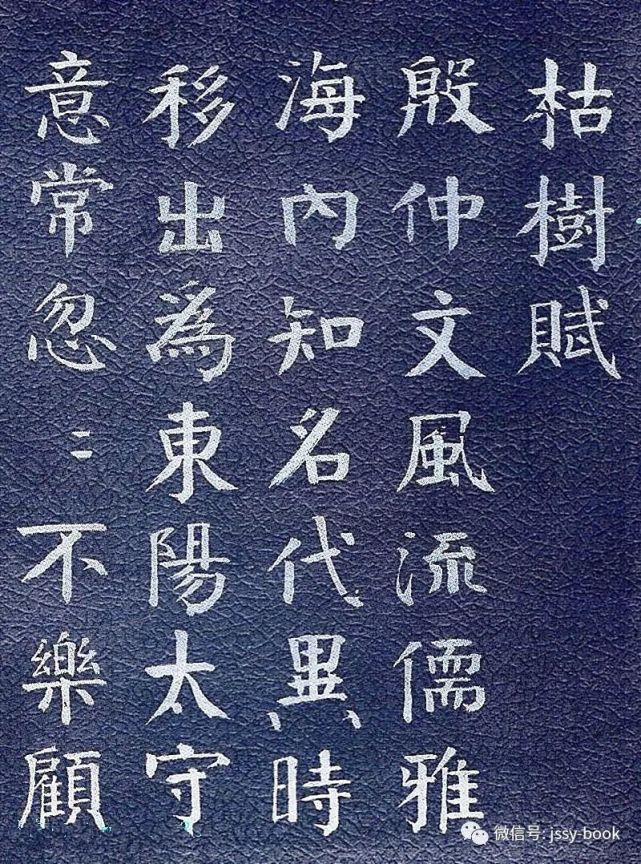 枯樹賦
殷仲文風流儒雅
海內知名代異時
移出為東陽太守
意常忽〻不樂顧
微信号: jssy-book